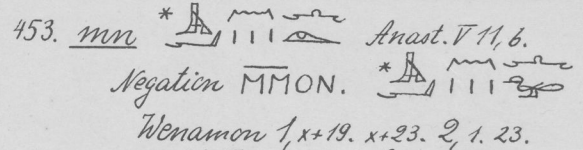 453. mn * Anast. V 11, 6.
Negation M̅M̅ON. *
Wenamon 1, x+19. x+23. 2, 1. 23.